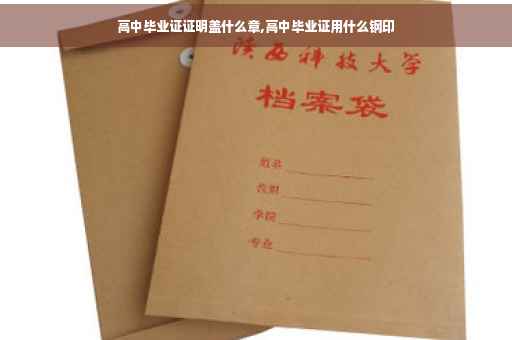 高中毕业证证明盖什么章,高中毕业证用什么钢印
陕西科技大学
档案袋
姓名
学院
专业